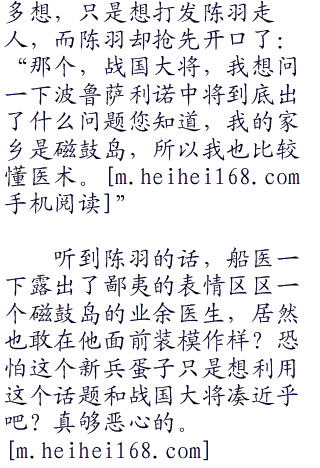 多想，只是想打发陈羽走
人，而陈羽却抢先开口了：
“那个，战国大将，我想问
一下波鲁萨利诺中将到底出
了什么问题您知道，我的家
乡是磁鼓岛，所以我也比较
懂医术。[m.heihei168.com
手机阅读]”
听到陈羽的话，船医一
下露出了鄙夷的表情区区一
个磁鼓岛的业余医生，居然
也敢在他面前装模作样？恐
怕这个新兵蛋子只是想利用
这个话题和战国大将凑近乎
吧？真够恶心的。
[m.heihei168.com]